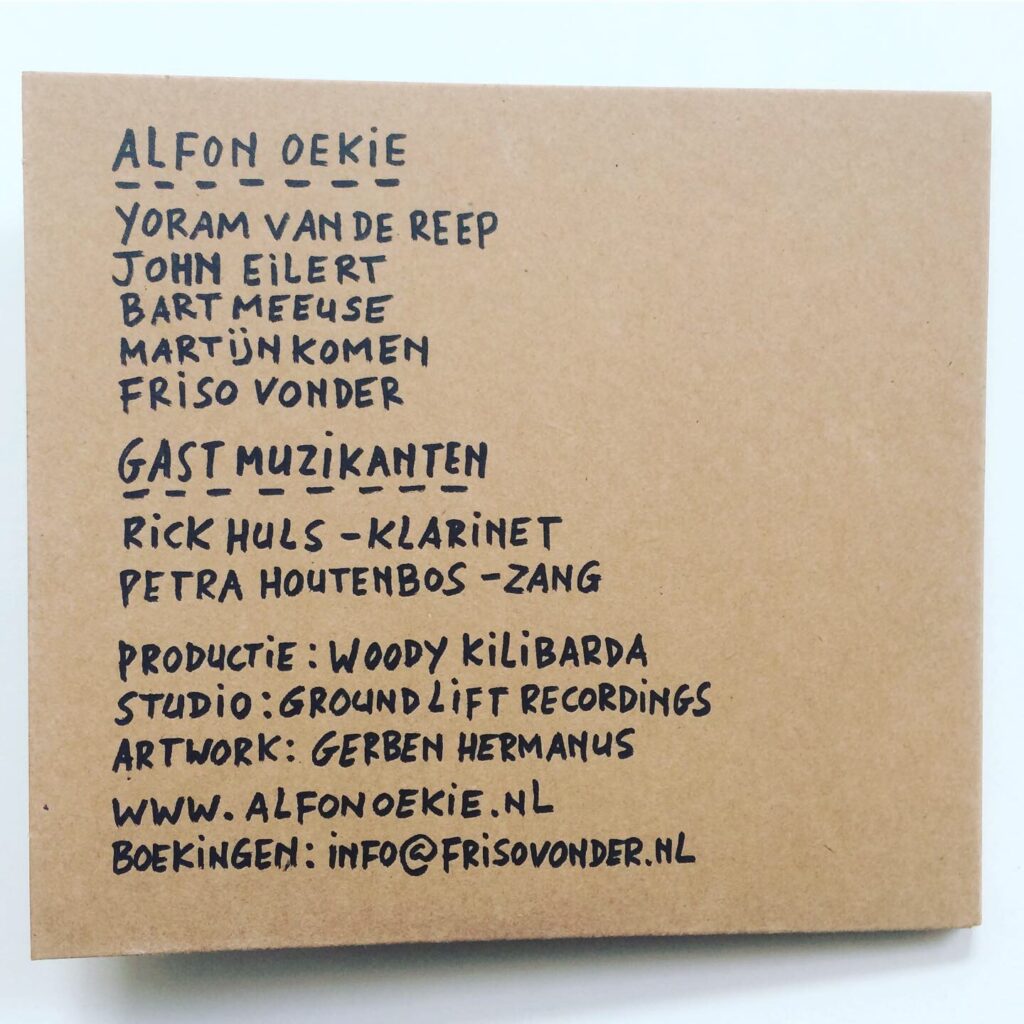 ALFON OEKiE
YORAM VAN DE REEP
JOHN EiLERT
BART MEEUSE
MARTiJN KOMEN
FRiSO VONDER
GAST MUZiKANTEN
RiCK HULS - KLARiNET
PETRA HOUTENBOS - ZANG
PRODUCTiE: WOODY KiLiBARDA
STUDiO: GROUND LiFT RECORDiNGS
ARTWORK: GERBEN HERMANUS
WWW.ALFONOEKiE.NL
BOEKiNGEN: iNFO@FRiSOVONDER.NL